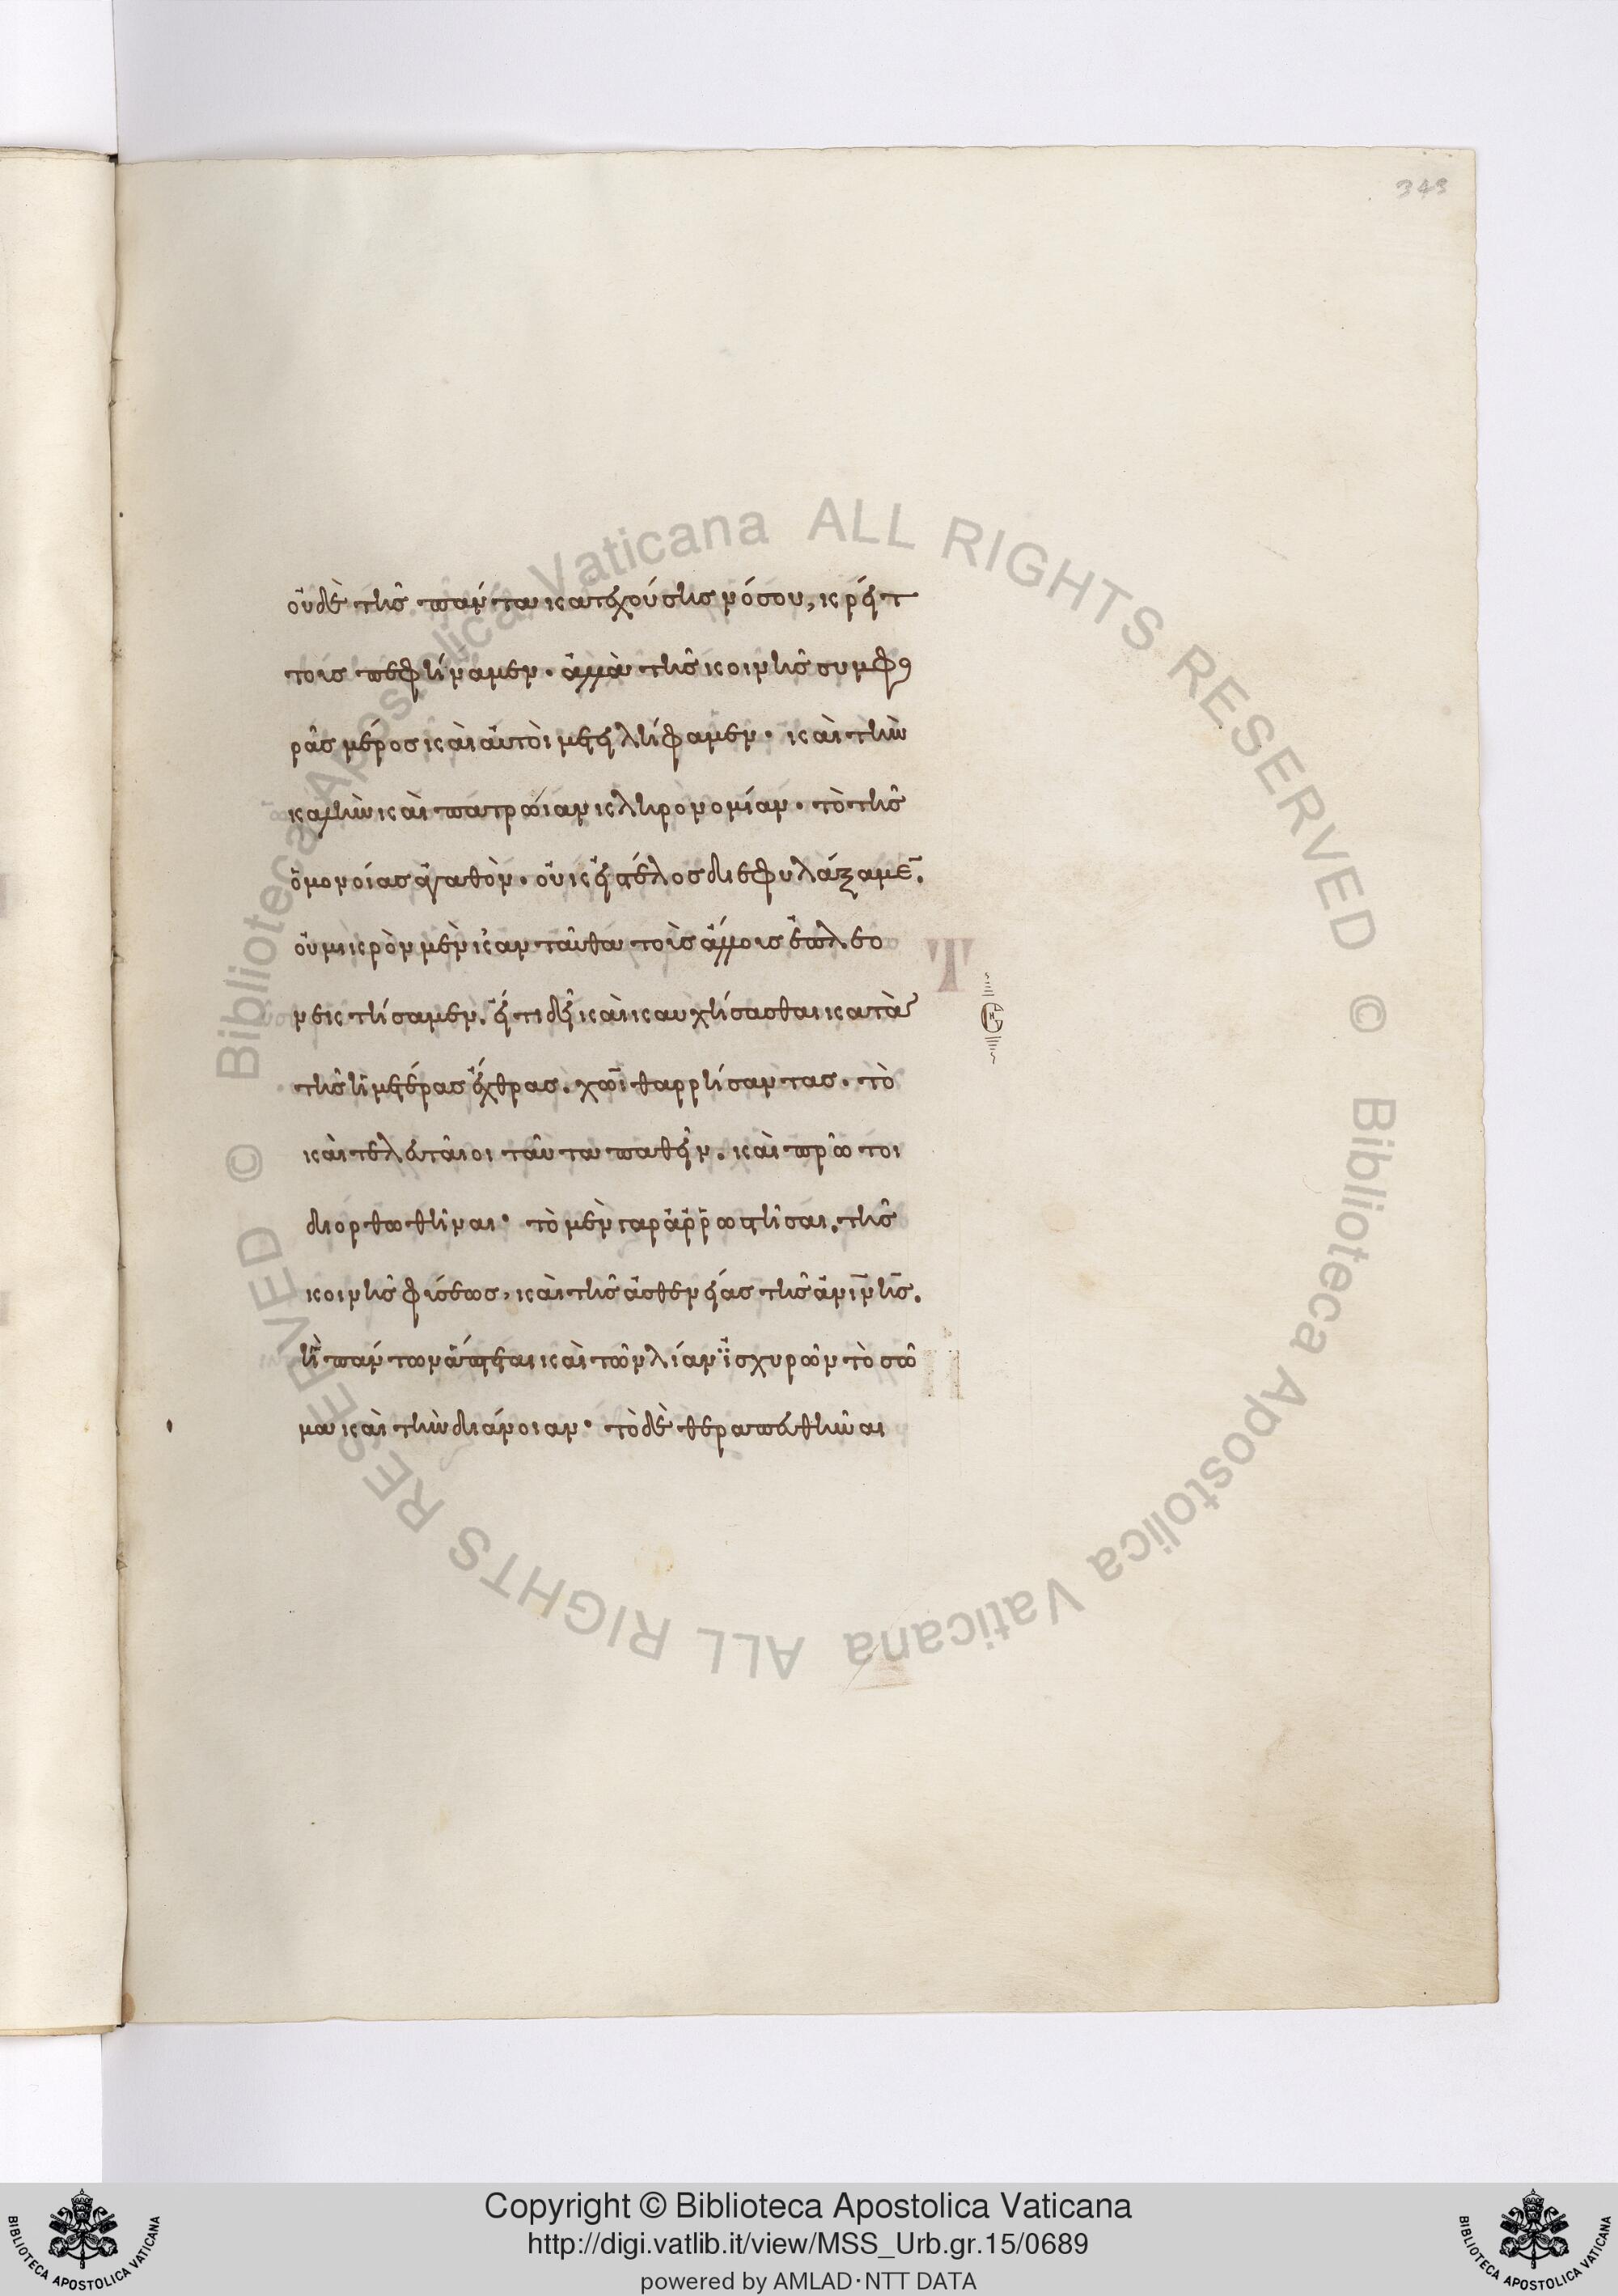 343
οὐδὲ τῆς πάντα κατεχούσης νόσου, κρείτ
τοις πεφήναμεν· ἀλλὰ τῆς κοινῆς συμφο
ρᾶς μέρος καὶ αὐτοὶ μετειλήφαμεν· καὶ τὴν
καλὴν καὶ πατρώιαν κληρονομίαν· τὸ τῆς
ὁμονοίας ἀγαθὸν· οὐκ εἰς τέλος διεφυλάξαμε̅.
οὐ μικρὸν μὲν κἀνταῦθα τοῖς ἄλλοις ἐπλεο
νεκτήσαμεν. εἴ τι δεῖ καὶ καυχήσασθαι κατὰ
τῆς ἡμετέρας ἔχθρας. χῶι θαρρήσαντας. τὸ
καὶ τελευταῖοι ταῦτα παθεῖν. καὶ πρῶτοι
διορθωθῆναι· τὸ μὲν γὰρ ἀρρωστῆσαι, τῆς
κοινῆς φύσεως, καὶ τῆς ἀσθενείας τῆς ἀνι̅νης.
ἣ πάντων ἅπτεται καὶ τῶν λίαν ἰσχυρῶν τὸ σῶ
μα καὶ τὴν διάνοιαν· τὸ δὲ θεραπευθῆναι
Copyright © Biblioteca Apostolica Vaticana
http://digi.vatlib.it/view/MSS_Urb.gr.15/0689
powered by AMLAD·NTT DATA
BIBLIOTECA APOSTOLICA VATICANA
BIBLIOTECA APOSTOLICA VATICANA
© Biblioteca Apostolica Vaticana ALL RIGHTS RESERVED
© Biblioteca Apostolica Vaticana ALL RIGHTS RESERVED